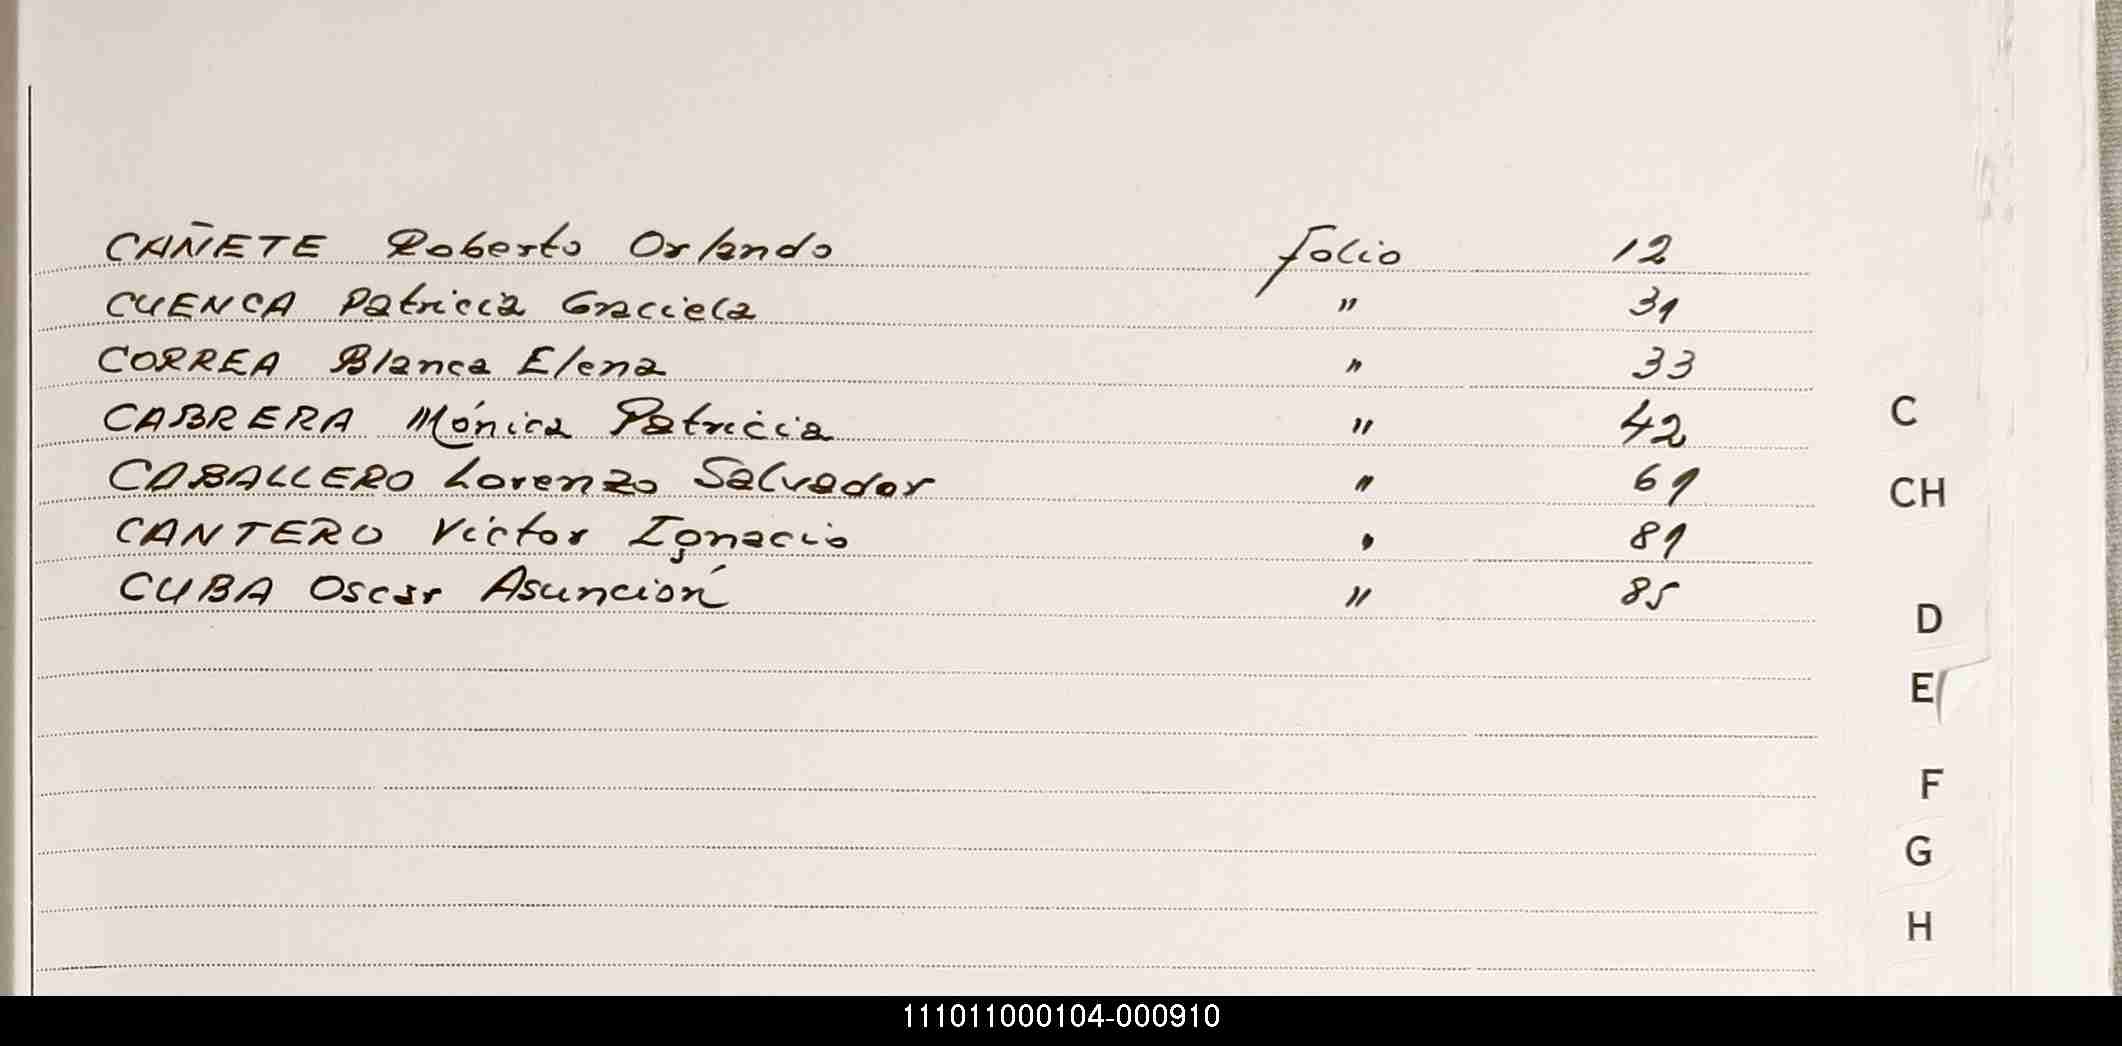 CAÑETE Roberto Orlando folio 12
CUENCA Patricia Graciela " 31
CORREA Blanca Elena " 33
CABRERA Mónica Patricia " 42
CABALLERO Lorenzo Salvador " 61
CANTERO Victor Ignacio " 81
CUBA Oscar Asunción " 85
C
CH
D
E
F
G
H
111011000104-000910